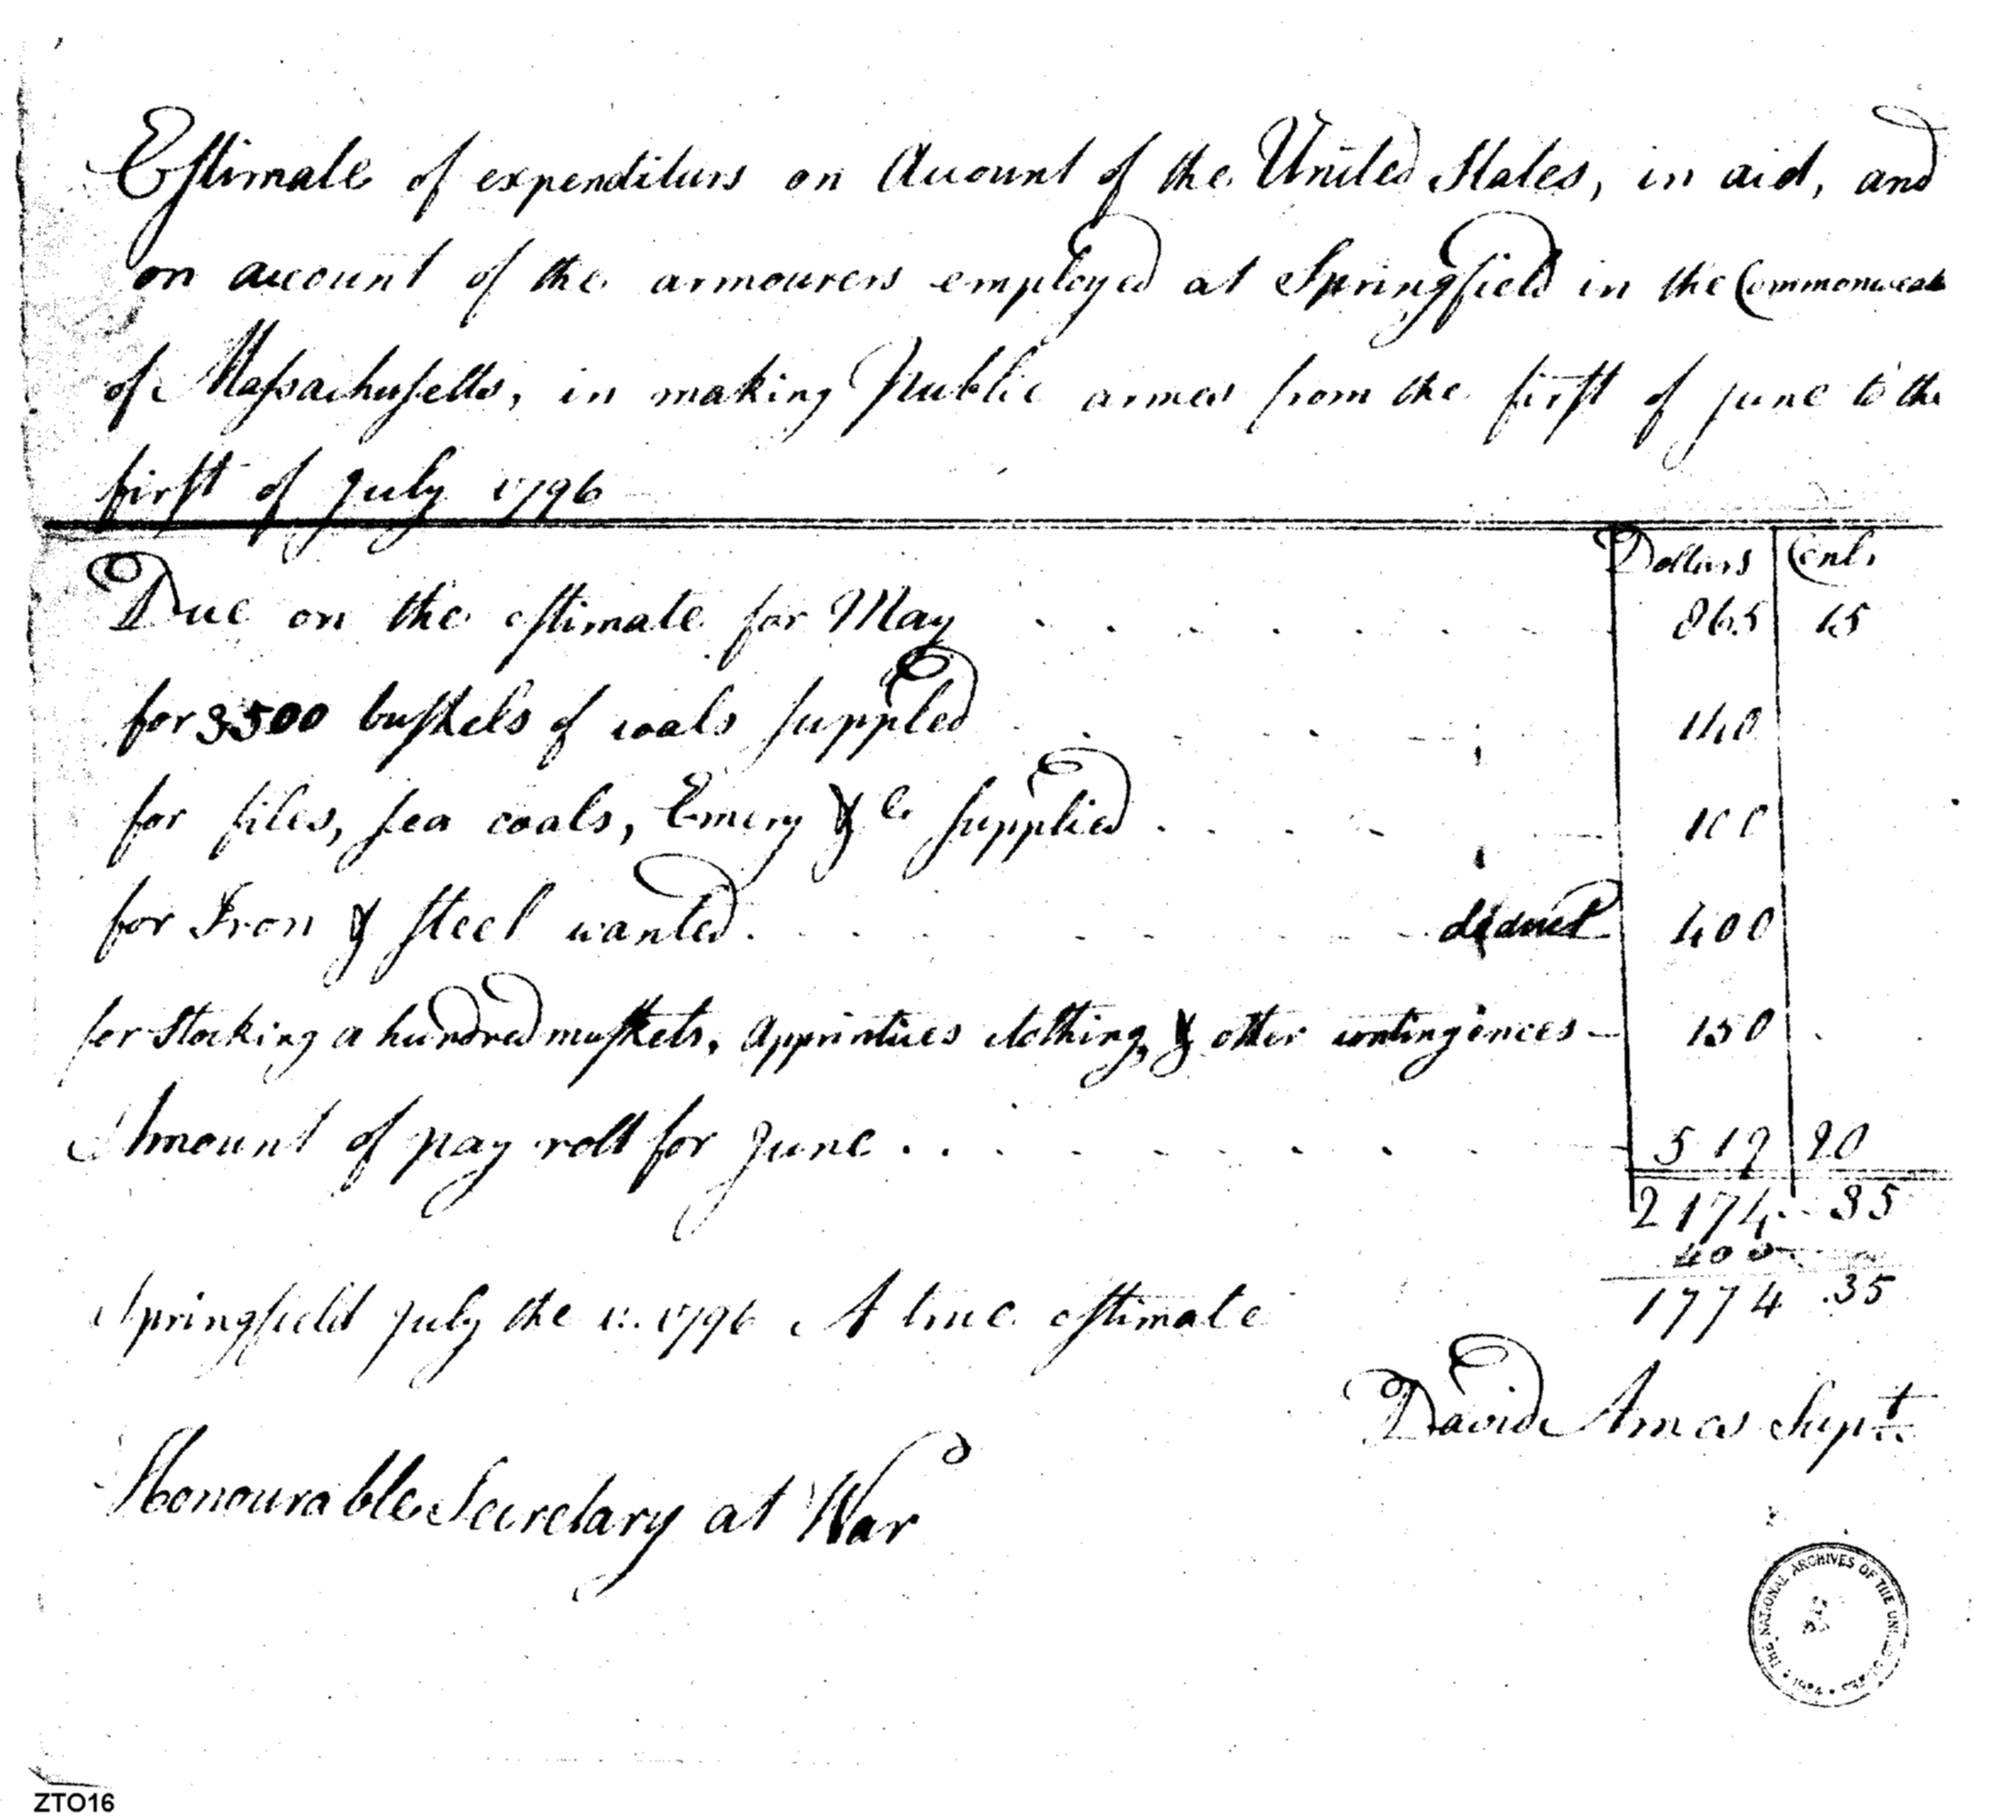 Estimate of expenditurs on Account of the United States, in aid, and
on account of the armourers employed at Springfield in the Commonweal
of Massachusetts, in making Public armes from the first of June to the
first of July 1796
Dollars Cents
Due on the estimate for May 865 15
for 3500 bushels of coals suppled 140
for files, sea coals, Emery &c supplied 100
for Iron & steel wanted deduct 400
for Stocking a hundred muskets, apprintices clothing, & other contingences 150
Amount of pay roll for June 519 20
2174 35
400
1774 .35
Springfield July the 1: 1796 A true estimate
David Ames Supt
Honourable Secretary at War
THE NATIONAL ARCHIVES OF THE UNITED STATES 1934
ZTO16